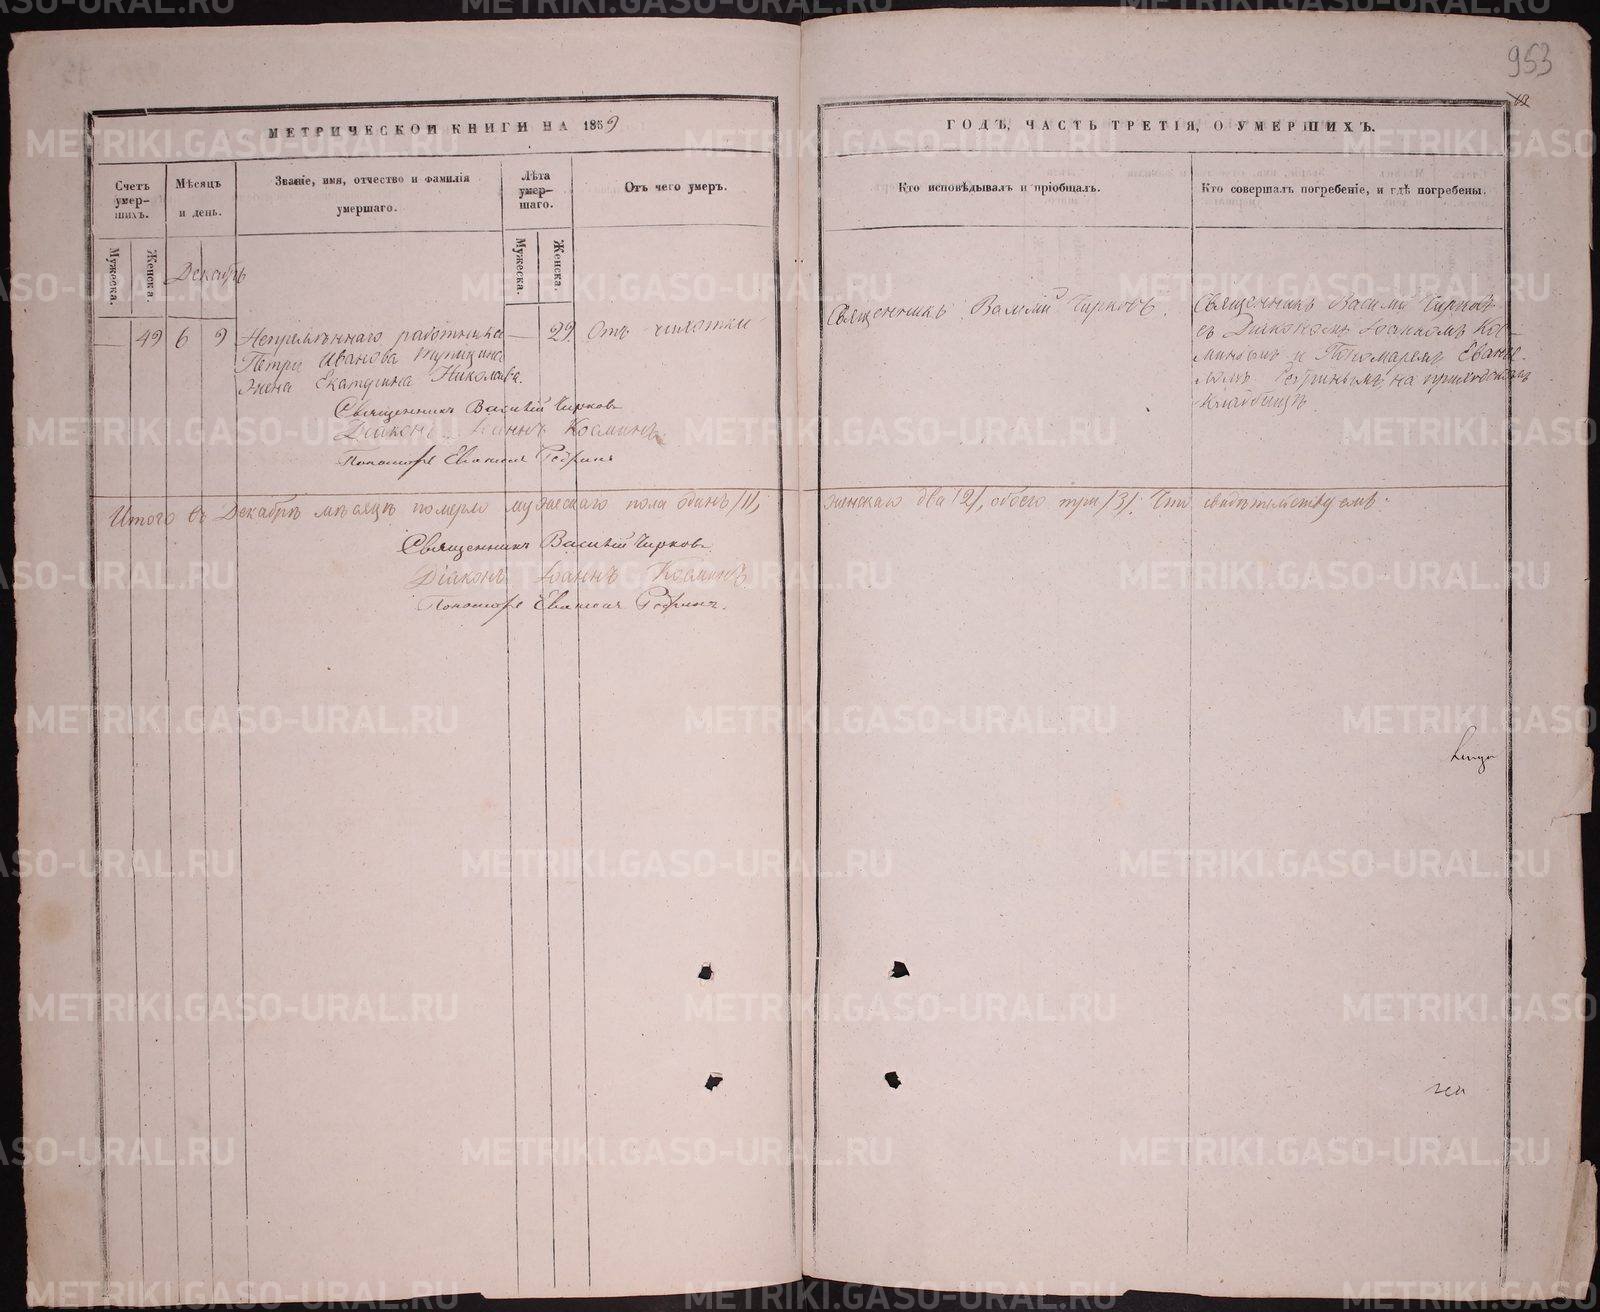 953
МЕТРИЧЕСКОЙ КНИГИ НА 1859
ГОДЪ, ЧАСТЬ ТРЕТІЯ, О УМЕРШИХЪ.
Счетъ умер-шихъ.
Мѣсяцъ и день.
Званіе, имя, отчество и фамилія умершаго.
Лѣта умер-шаго.
Отъ чего умеръ.
Кто исповѣдывалъ и пріобщалъ.
Кто совершалъ погребеніе, и гдѣ погребены.
Мужеска.
Женска.
Мужеска.
Женска.
Декабрь
— 49 6 9
Непремѣннаго работника
Петра Иванова Тупицина
жена Екатерина Николаева.
— 29
Отъ чихотки
Священникъ Василій Чирковъ.
Священникъ Василій Чирковъ
съ Діакономъ Іоанномъ Кос-
минымъ и Пономаремъ
на приходскомъ
кладбищѣ.
Священникъ Василій Чирковъ
Діаконъ Іоаннъ Косминъ
Пономарь
Итого въ Декабрѣ мѣсяцѣ померло мужескаго пола одинъ /1/, женскаго два /2/, обоего три /3/. Что свидѣтельствуемъ:
Священникъ Василій Чирковъ
Діаконъ Іоаннъ Косминъ
Пономарь
METRIKI.GASO-URAL.RU